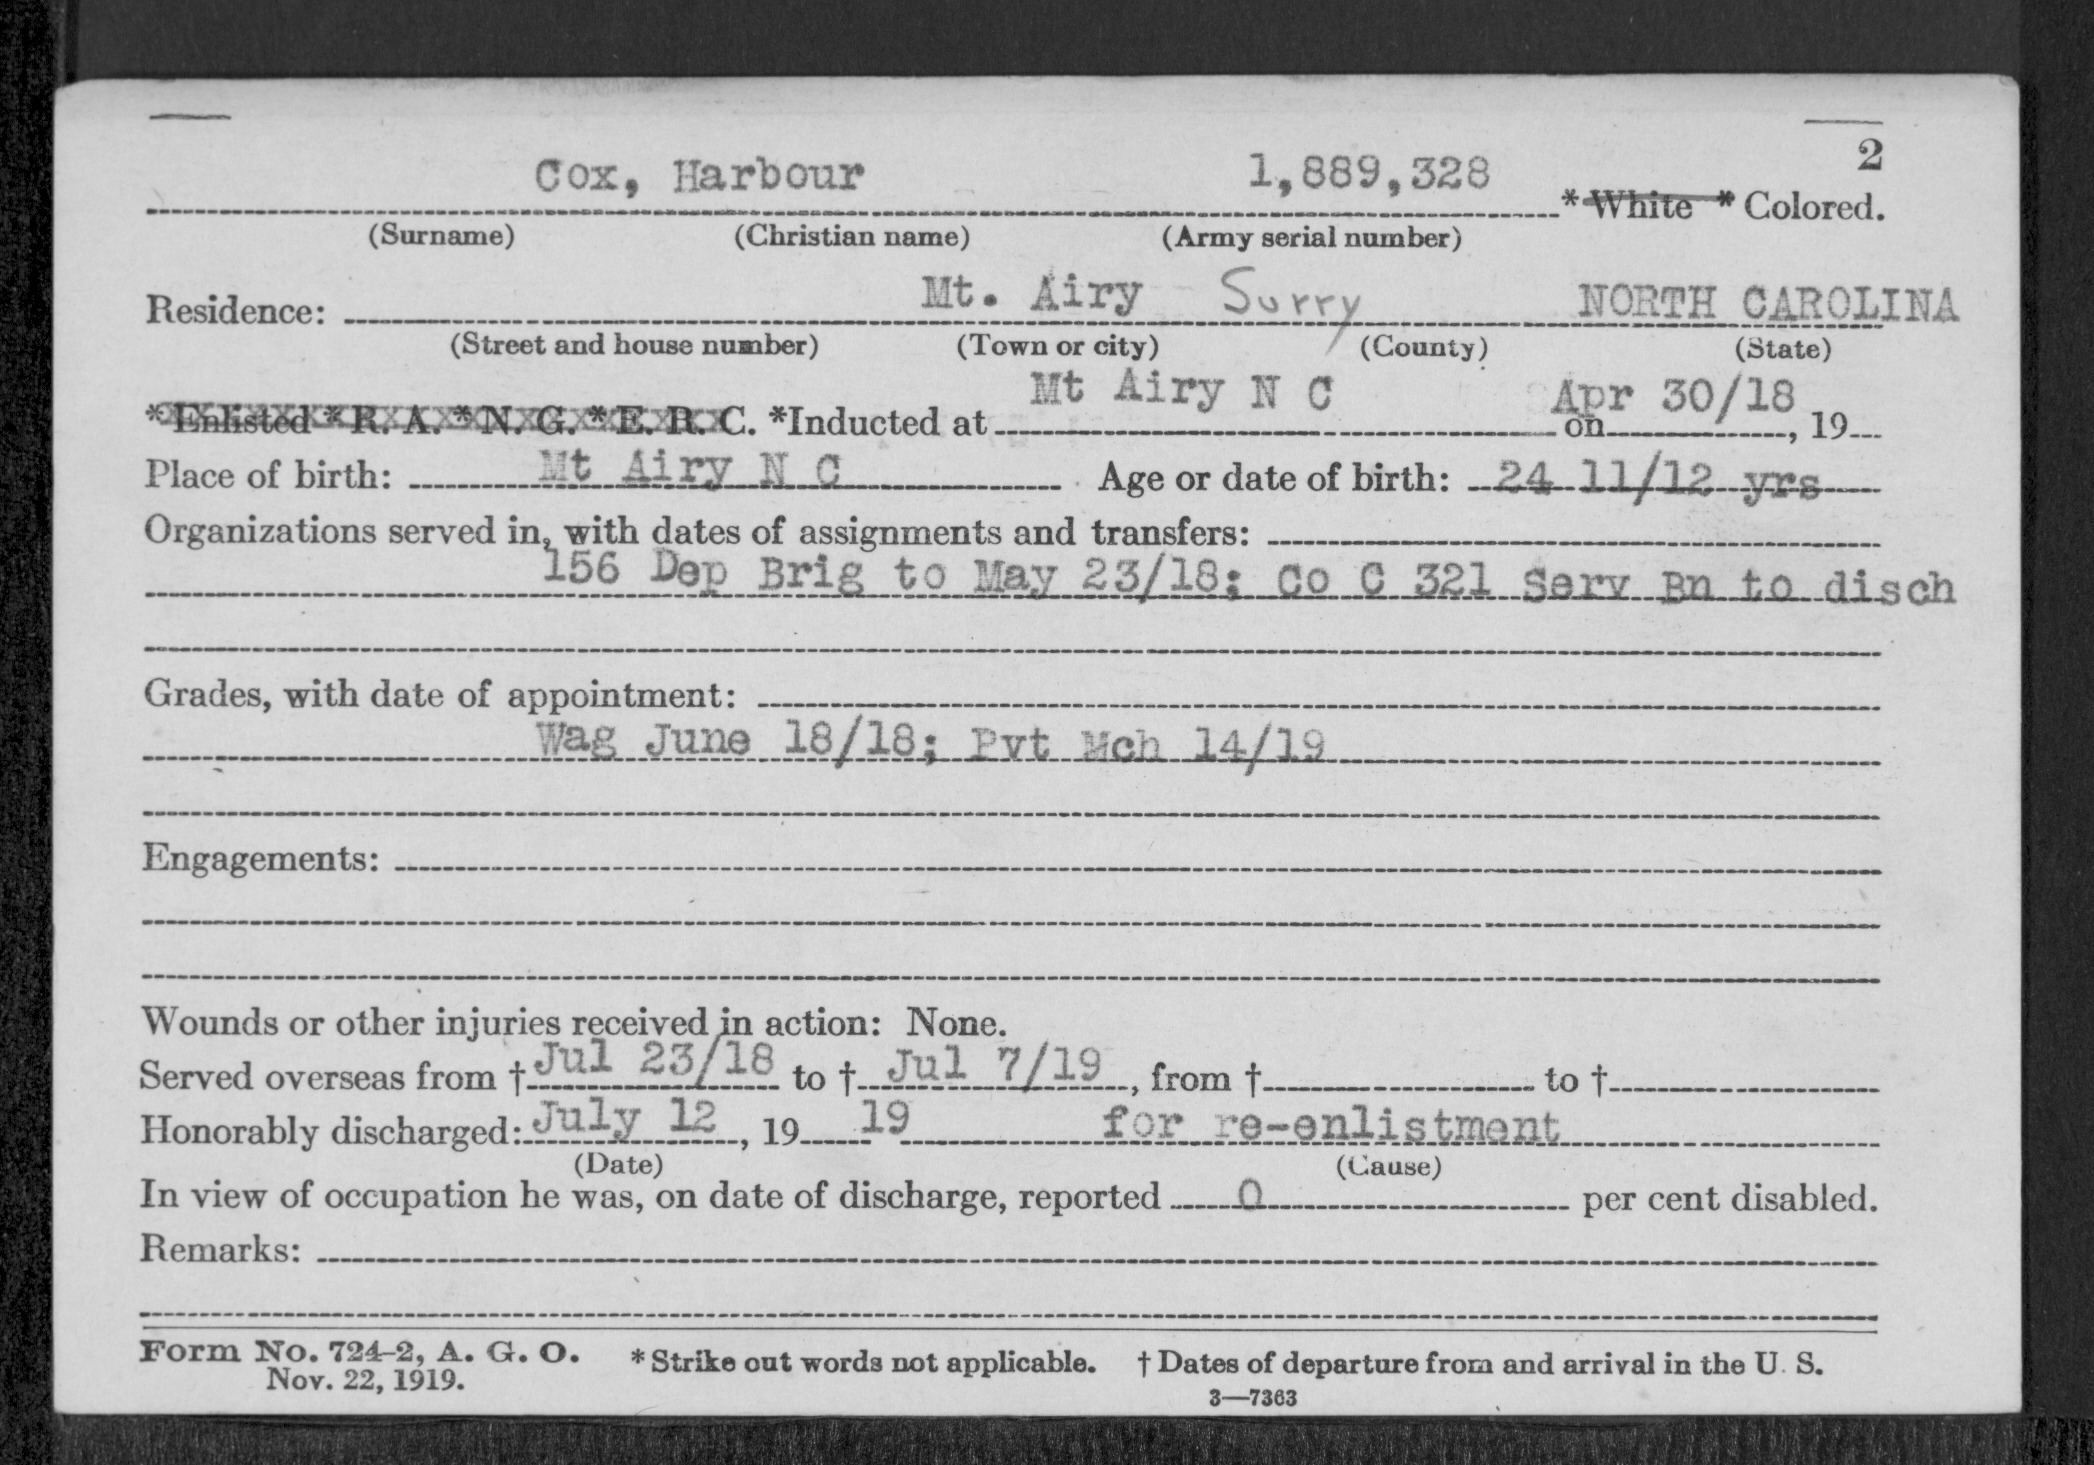 2
Cox, Harbour 1,889,328 * White * Colored.
(Surname) (Christian name) (Army serial number)
Residence: Mt. Airy Surry NORTH CAROLINA
(Street and house number) (Town or city) (County) (State)
* Enlisted * R. A. * N. G. * E. R. C. *Inducted at Mt Airy N C on Apr 30/18, 19
Place of birth: Mt Airy N C Age or date of birth: 24 11/12 yrs
Organizations served in, with dates of assignments and transfers:
156 Dep Brig to May 23/18; Co C 321 Serv Bn to disch
Grades, with date of appointment:
Wag June 18/18; Pvt Mch 14/19
Engagements:
Wounds or other injuries received in action: None.
Served overseas from † Jul 23/18 to † Jul 7/19, from † to †
Honorably discharged: July 12, 19 19 for re-enlistment
(Date) (Cause)
In view of occupation he was, on date of discharge, reported 0 per cent disabled.
Remarks:
Form No. 724-2, A. G. O. * Strike out words not applicable. † Dates of departure from and arrival in the U. S.
Nov. 22, 1919.
3—7363